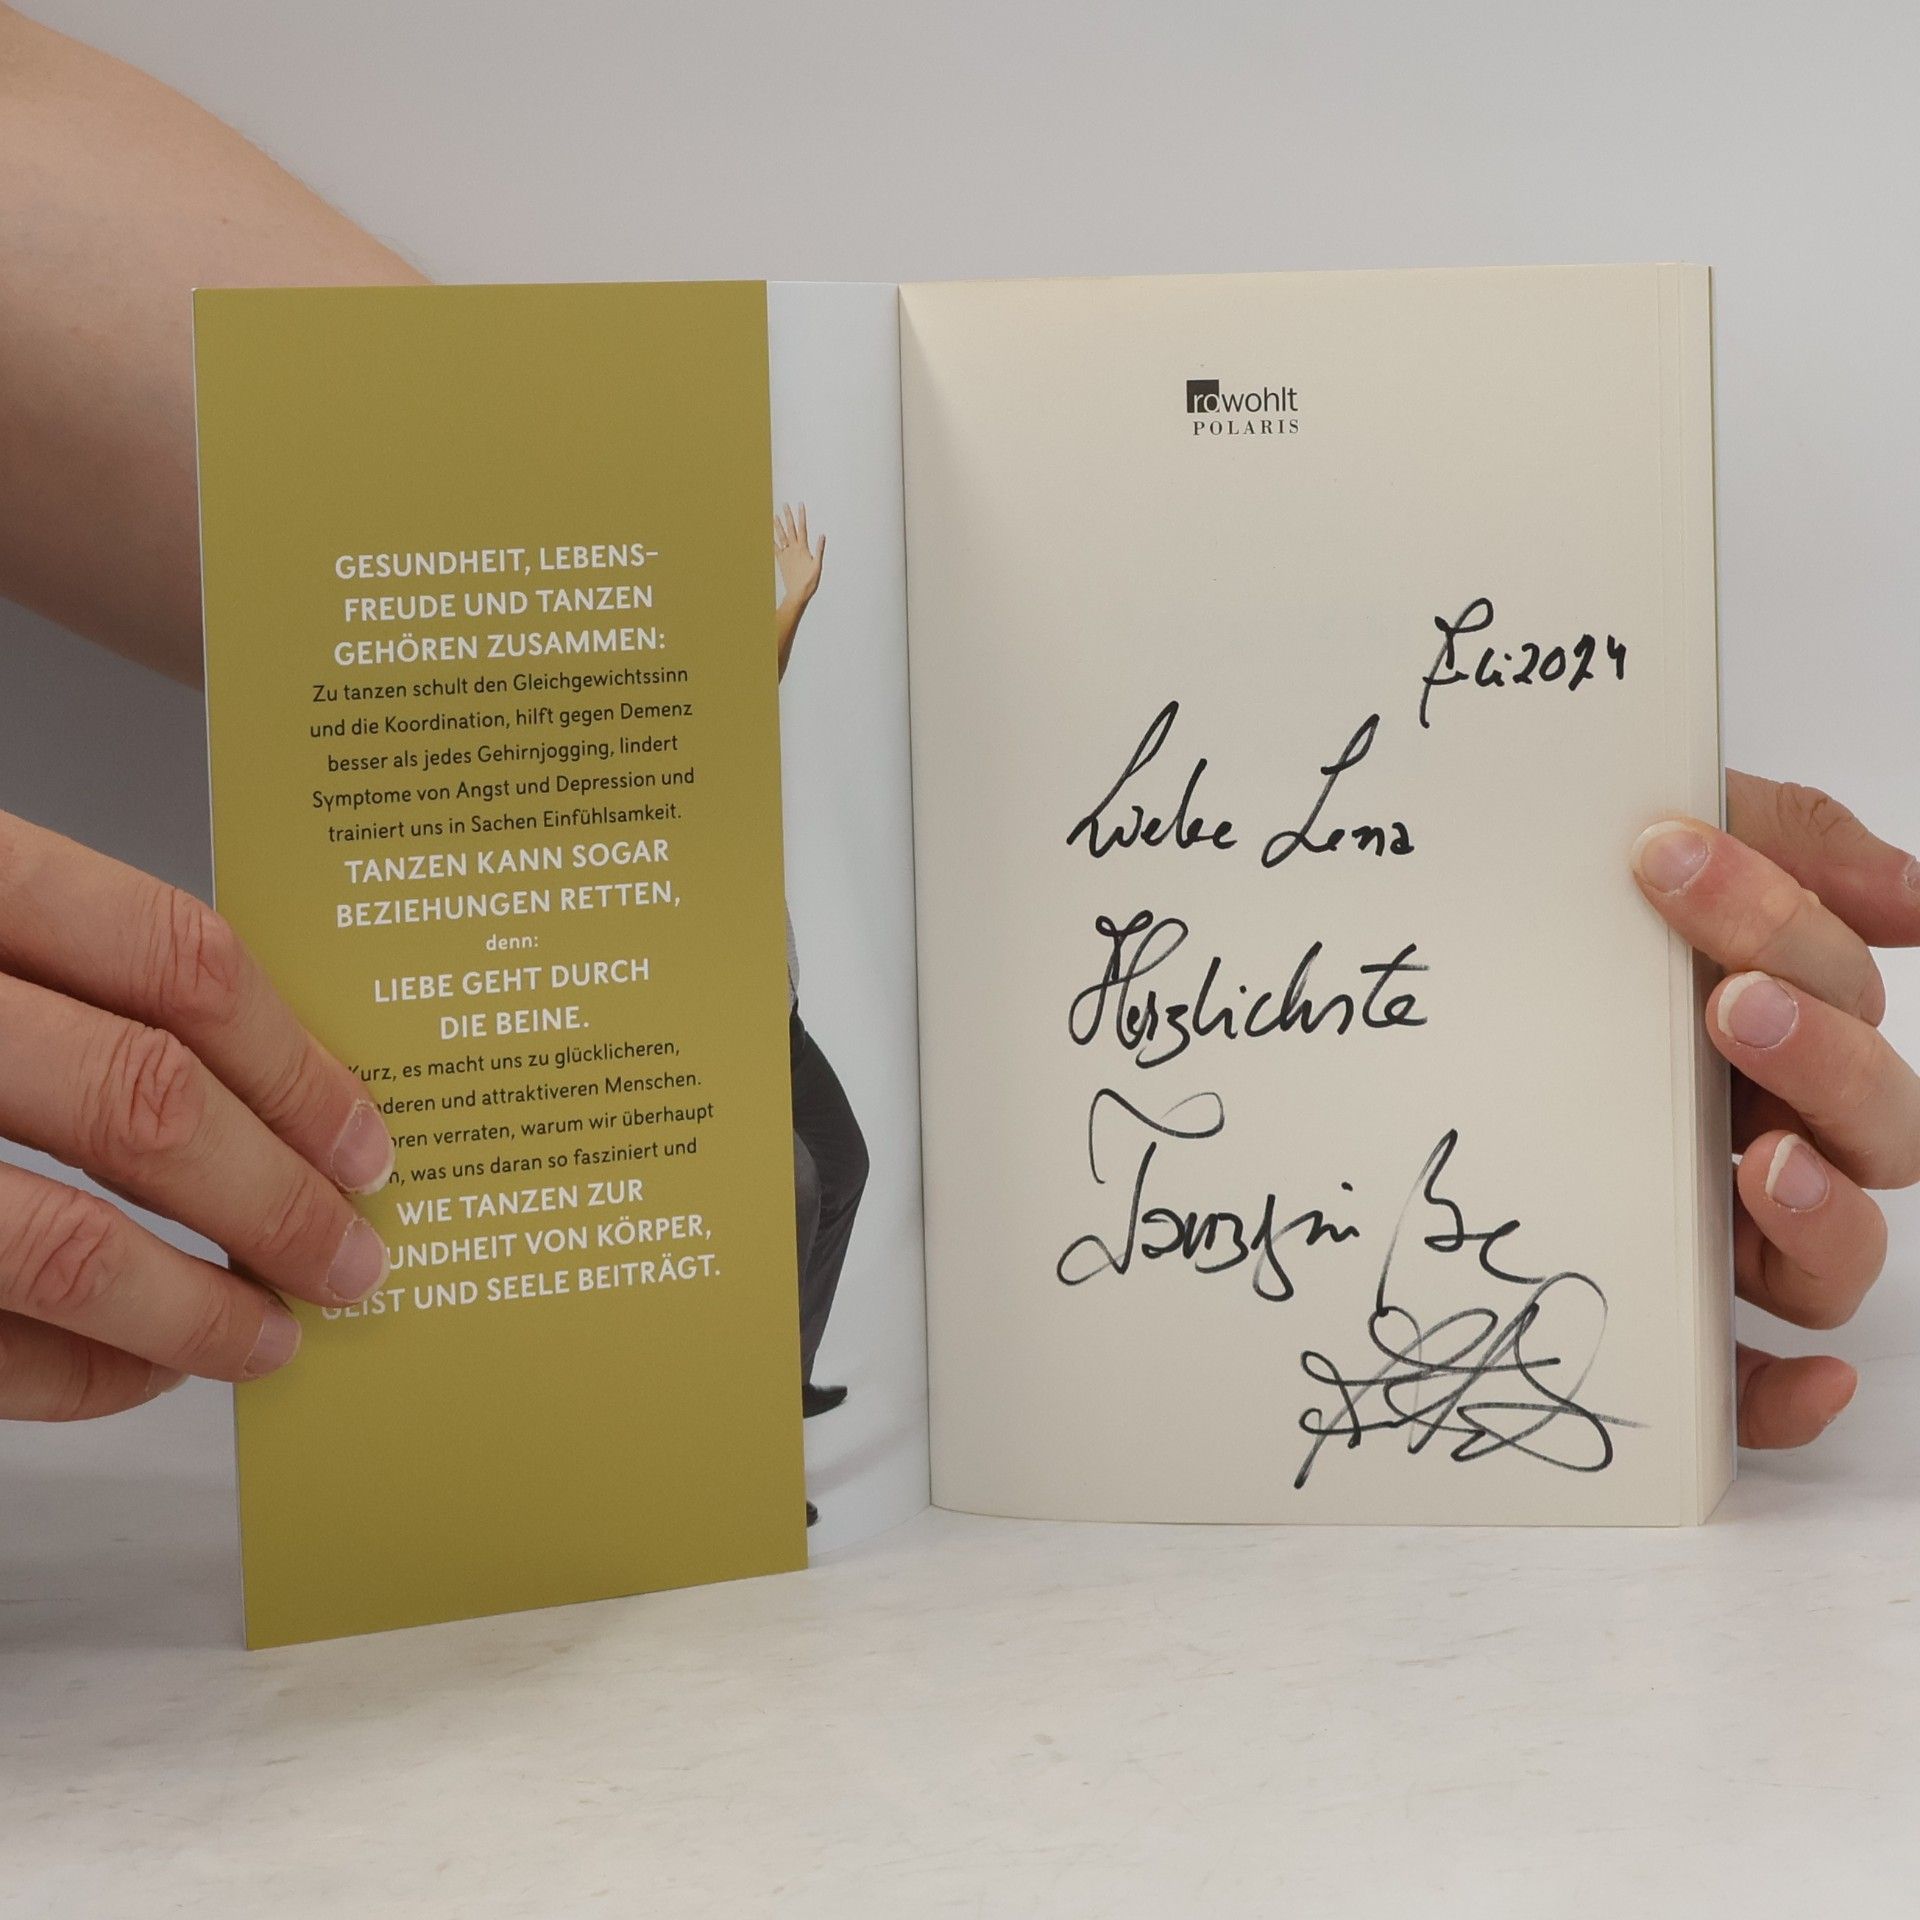 GESUNDHEIT, LEBENS-
FREUDE UND TANZEN
GEHÖREN ZUSAMMEN:
Zu tanzen schult den Gleichgewichtssinn
und die Koordination, hilft gegen Demenz
besser als jedes Gehirnjogging, lindert
Symptome von Angst und Depression und
trainiert uns in Sachen Einfühlsamkeit.
TANZEN KANN SOGAR
BEZIEHUNGEN RETTEN,
denn:
LIEBE GEHT DURCH
DIE BEINE.
Kurz, es macht uns zu glücklicheren,
und attraktiveren Menschen.
verraten, warum wir überhaupt
was uns daran so fasziniert und
WIE TANZEN ZUR
VON KÖRPER,
GEIST UND SEELE BEITRÄGT.
rowohlt
POLARIS
Juli 2024
Liebe Lena
Herzlichste